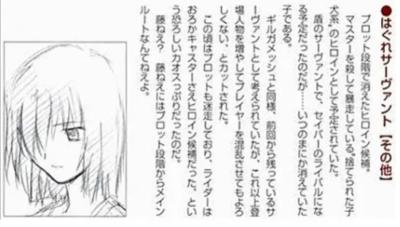 ●はぐれサーヴァント【その他】
プロット段階で消えたヒロイン候補。
マスターを殺して暴走している"捨てられた子
犬系"のヒロインとして予定されていた。
盾のサーヴァントで、セイバーのライバルにな
る予定だったのだが……いつのまにか消えていた
子である。
ギルガメッシュと同様、前回から残っているサ
ーヴァントとして考えられていたが、これ以上登
場人物を増やしてプレイヤーを混乱させてもよろ
しくない、とカットされた。
この頃はプロットも迷走しており、ライダーは
おろかキャスターさえヒロイン候補だった、とい
う恐ろしいカオスっぷりだったのだ。
藤ねえ？　藤ねえにはプロット段階からメイン
ルートなんてねえよ。